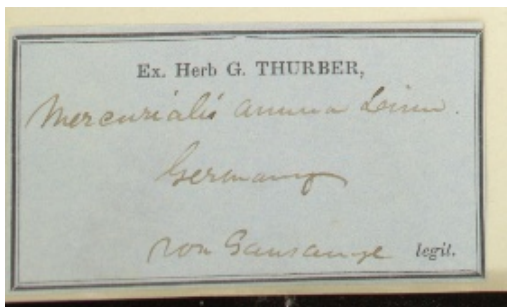 Ex. Herb G. THURBER,
Mercurialis annua Linn.
Germany
von Gansauge legit.